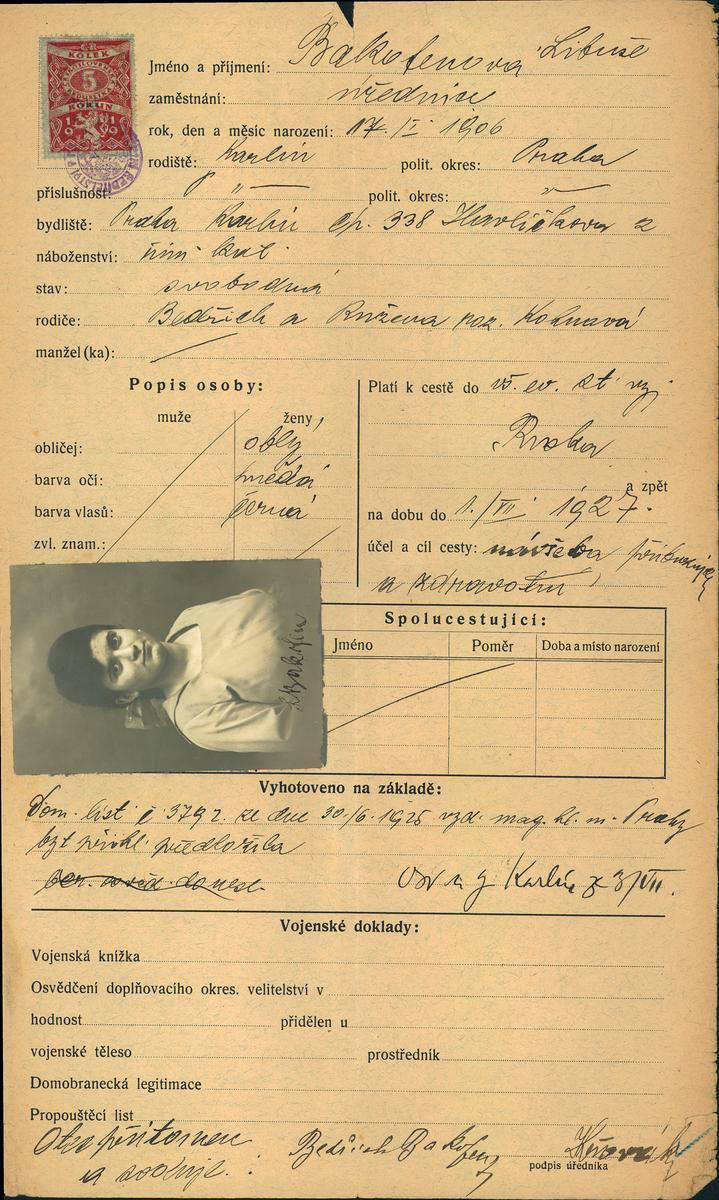 ČR
KOLEK
5
KORUN
1919
Jméno a příjmení: Bakofenova Libuše
zaměstnání: úřednice
rok, den a měsíc narození: 17./I 1906
rodiště: Karlín polit. okres: Praha
příslušnost: „ — polit. okres: „
bydliště: Praha Karlín čp. 338 Havlíčkova 2
náboženství: řím kat.
stav: svobodná
rodiče: Bedřich a Růžena roz. Kohnavá
manžel(ka):
Popis osoby:
muže ženy
obličej: oblý
barva očí: hnědá
barva vlasů: černá
zvl. znam.:
Platí k cestě do vš. ev. st.
a zpět
na dobu do 1./VII 1927.
účel a cíl cesty: návšěva
a zdravotní
Bakofen
Spolucestující:
Jméno Poměr Doba a místo narození
Vyhotoveno na základě:
Dom. list č 3792 ze dne 30./6. 1925 vyd. mag. hl. m. Prahy
byt. přihl. předložila
Karlín z 3/VII.
Vojenské doklady:
Vojenská knížka
Osvědčení doplňovacího okres. velitelství v
hodnost přidělen u
vojenské těleso prostředník
Domobranecká legitimace
Propouštěcí list
Otec přítomen
a svoluje. Bedřich Bakofen
podpis úředníka